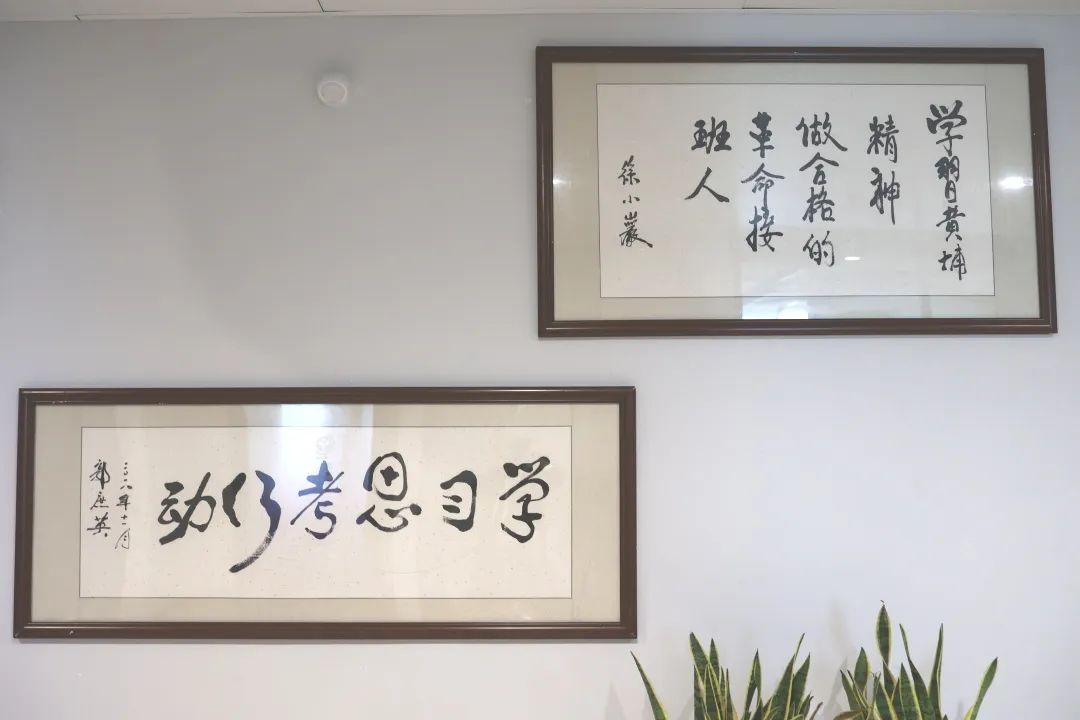 学習黄埔
精神
做合格的
革命接
班人
徐小巖
学习思考行动
二〇一八年十一月